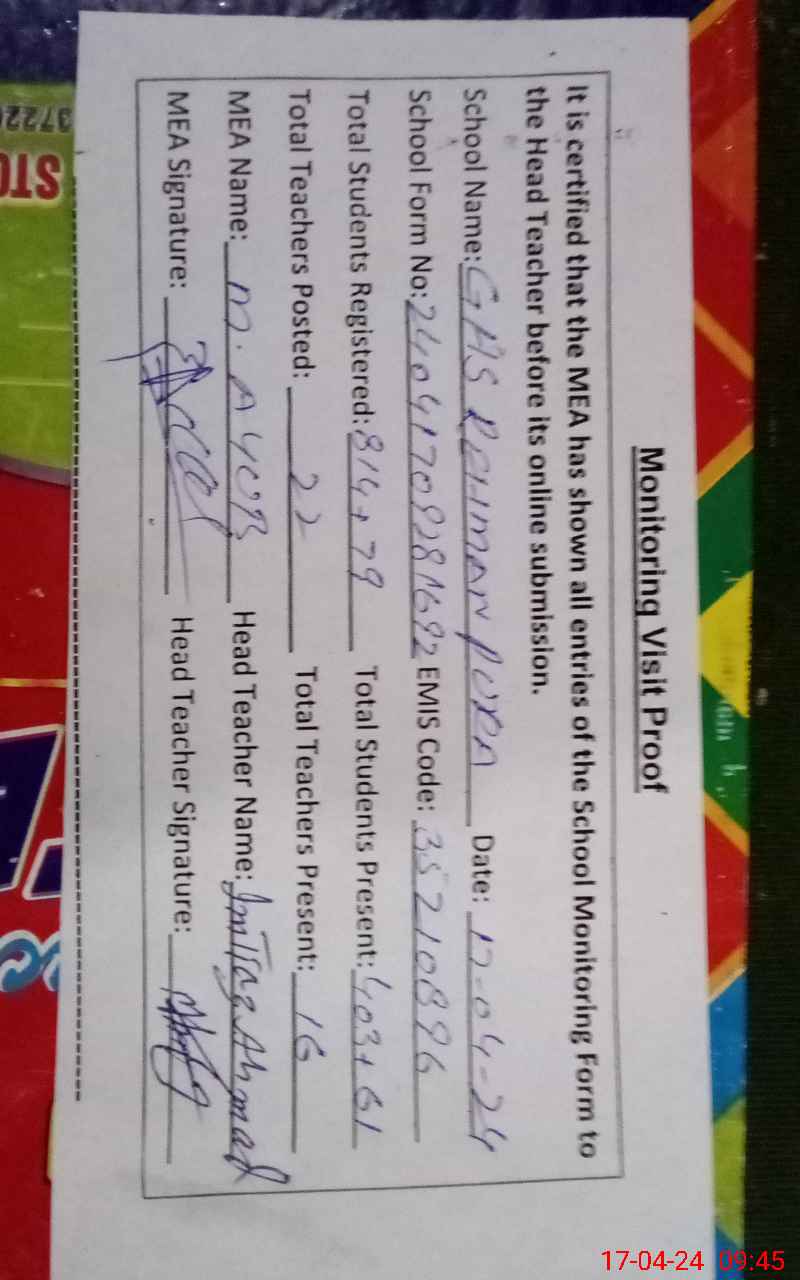 Monitoring Visit Proof
It is certified that the MEA has shown all entries of the School Monitoring Form to
the Head Teacher before its online submission.
School Name: GHS REHMAN PURA Date: 17-04-24
School Form No: EMIS Code: 35210896
Total Students Registered: 814+79 Total Students Present: 403+61
Total Teachers Posted: 22 Total Teachers Present: 16
MEA Name: M. AYOB Head Teacher Name: Imtiaz Ahmad
MEA Signature: Head Teacher Signature:
3722
STO
17-04-24 09:45